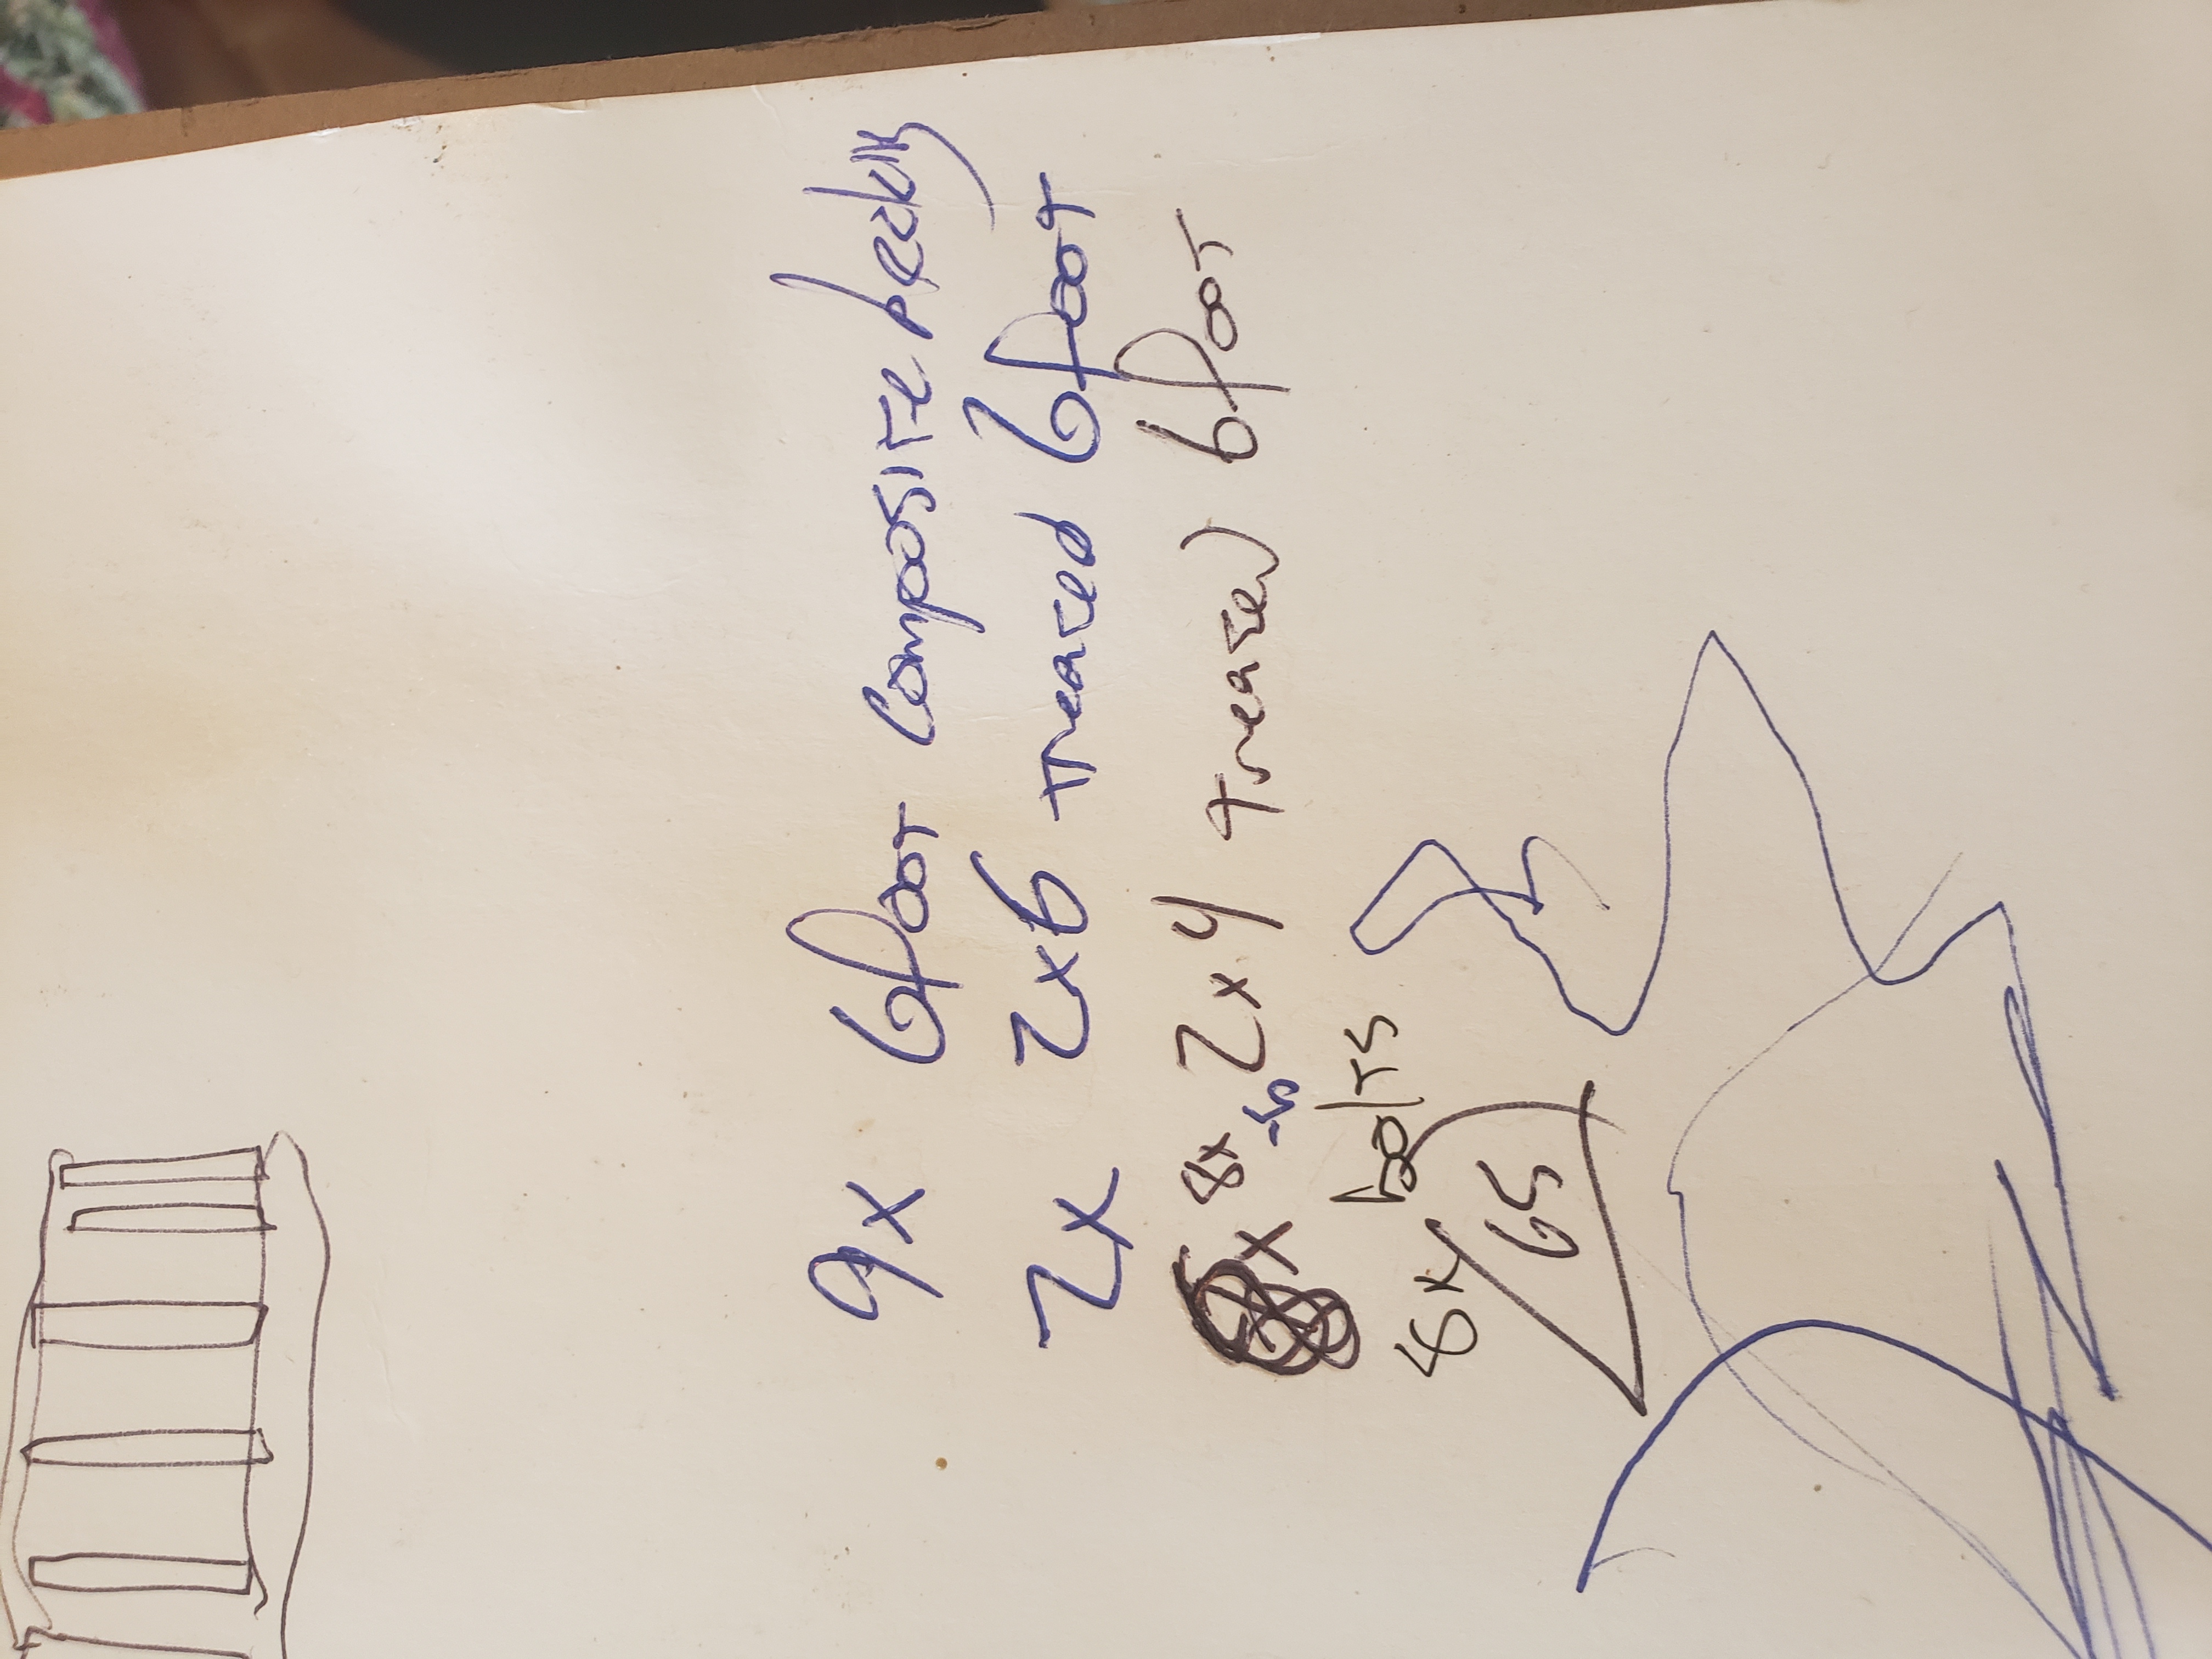 9x 6foot Composite decking
2x 2x6 treated 6foot
8x 2x4 treated 6foot
-5
8x bolts
65